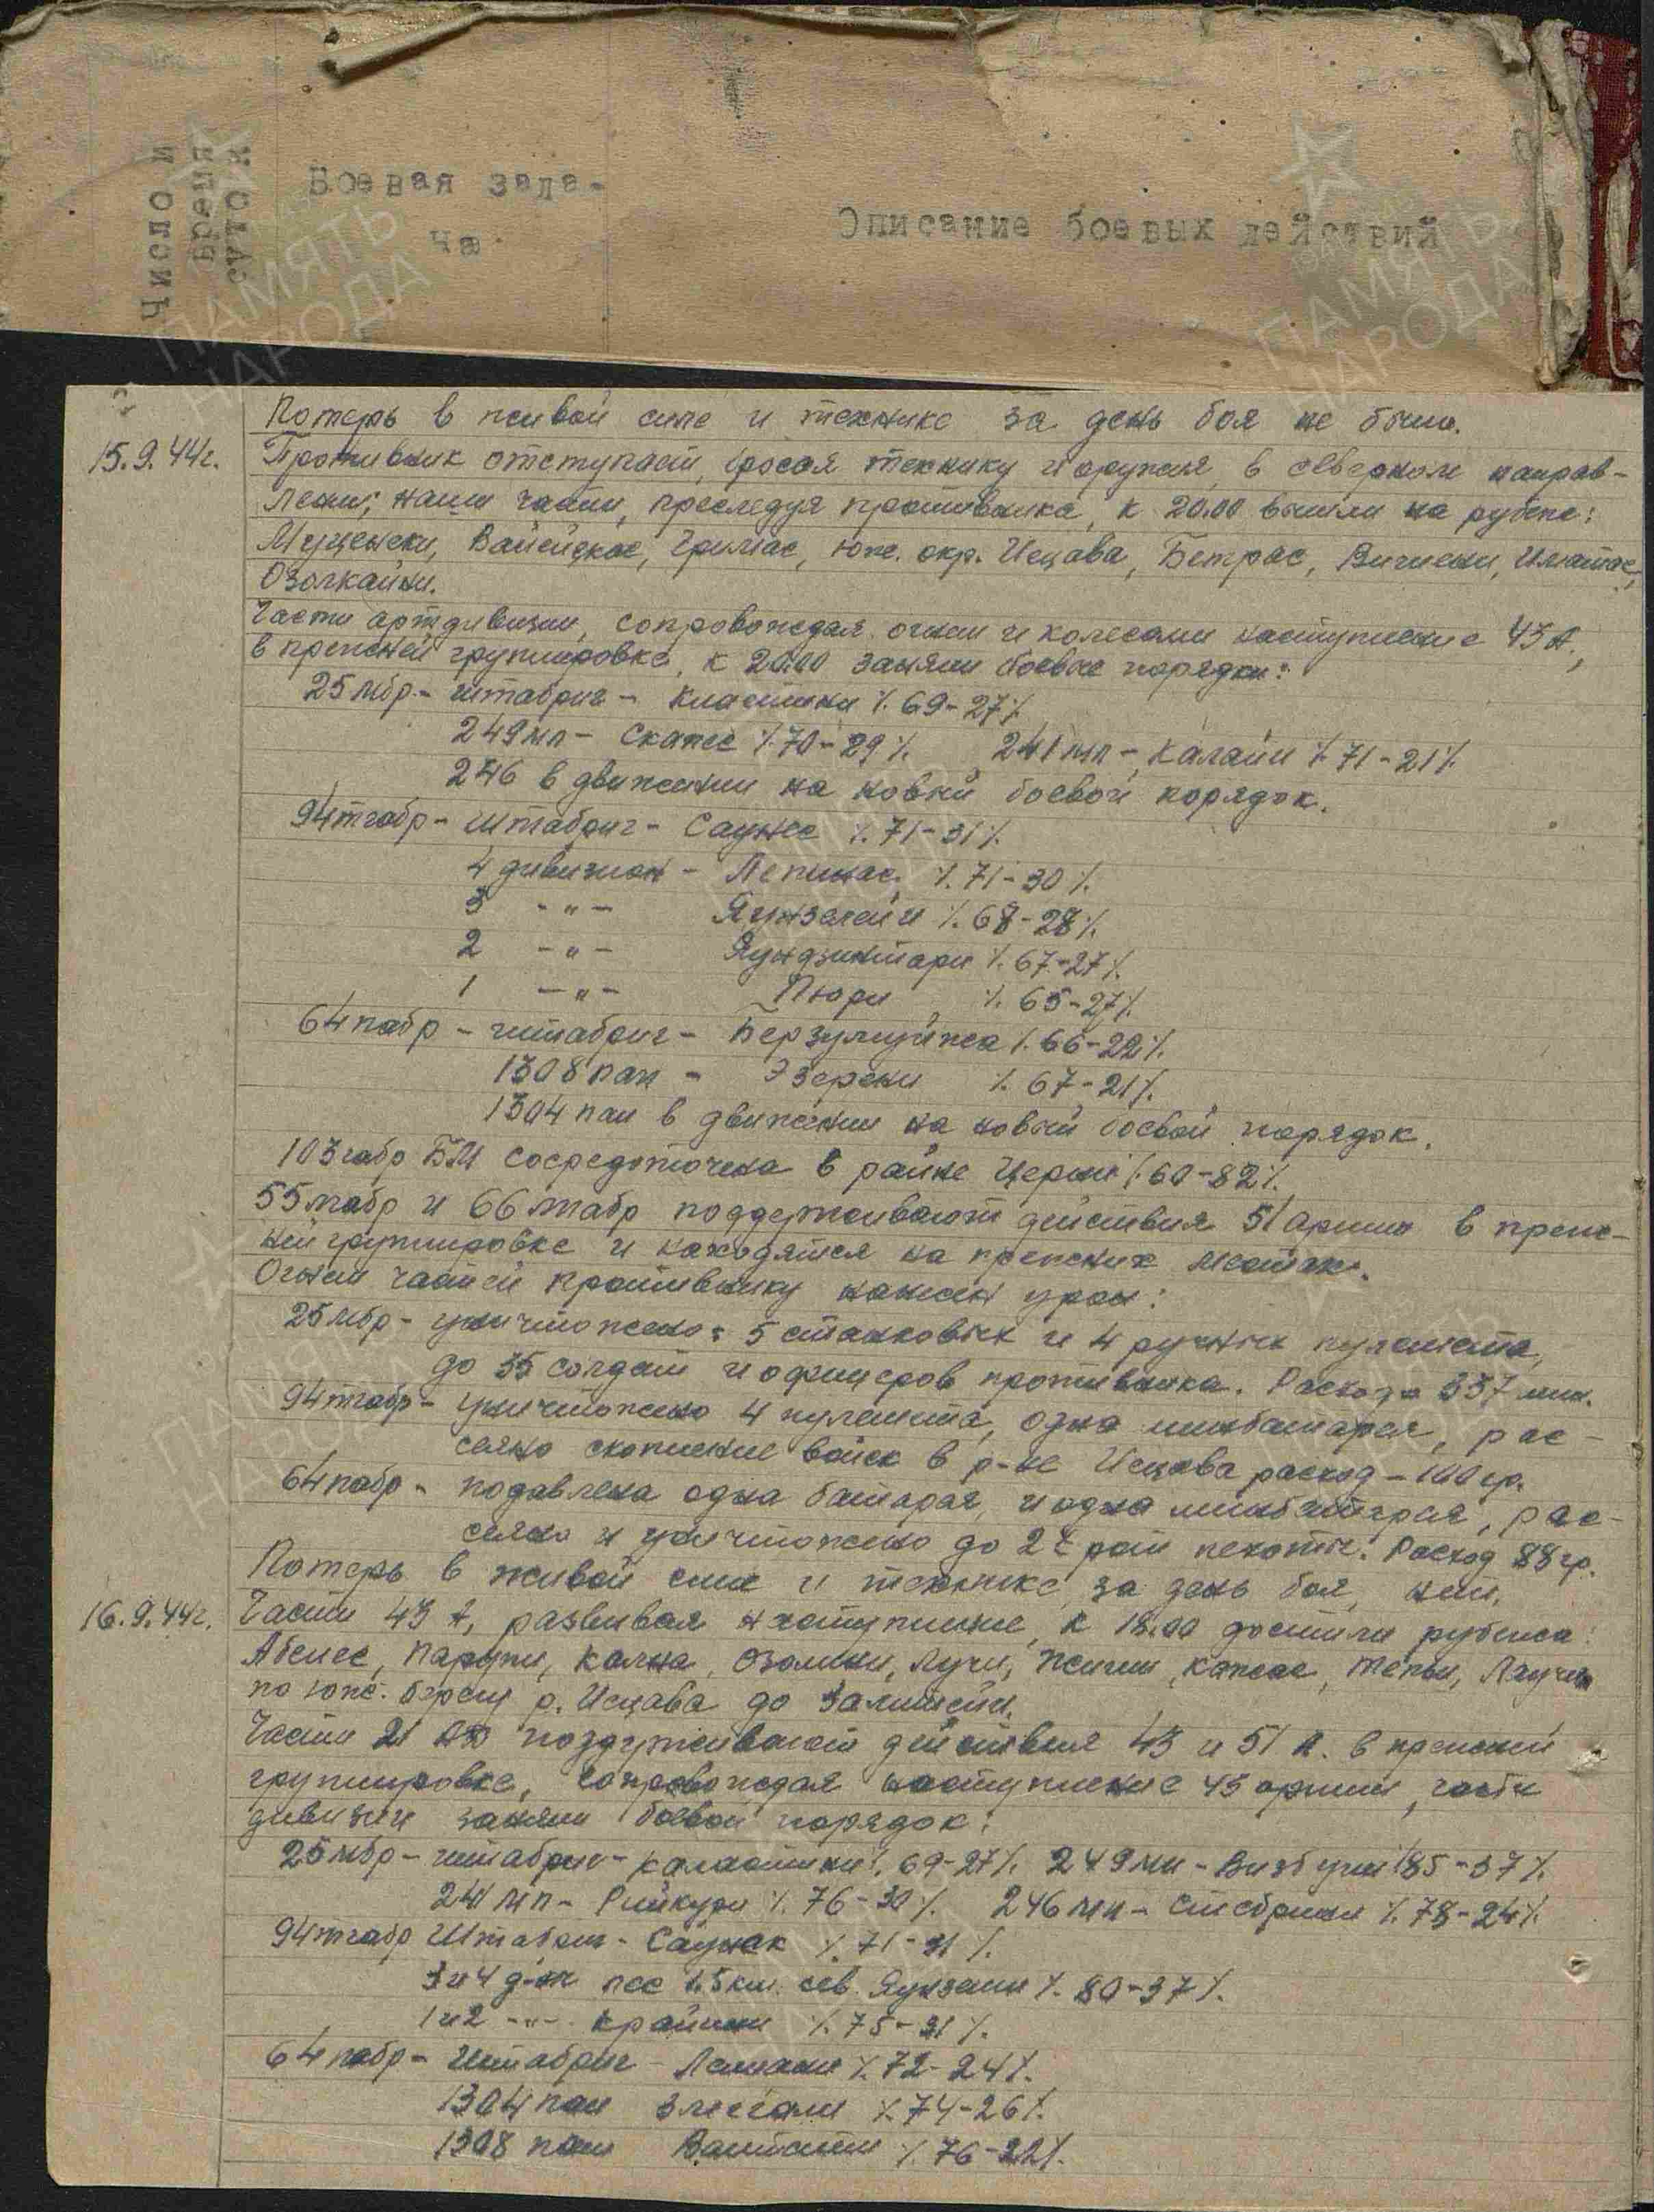 Число и время
Боевая зада-
ча
Описание боевых действий
ПАМЯТЬ НАРОДА
ПАМЯТЬ НАРОДА
Потерь в живой силе и технике за день боя не было.
15.9.44г. Противник отступает, бросая технику и оружия, в северном направ-
лении; наши части, преследуя противника, к 20.00 вышли на рубеж:
Гримас, юж. окр. Иецава, Бетрас,
Озолкайни.
Части артдивизии, сопровождая огнем и колесами наступление 43 А.,
в прежней группировке, к 20.00 заняли боевые порядки:
25 мбр - штабриг - Кластини /. 69-27/.
249 мп - Скапес /. 70-29/. 241 мп - Калаии /. 71-21/.
246 в движении на новый боевой порядок.
94 тгабр - штабриг - Саунес /. 71-31/.
4 дивизион - Лепинас /. 71-30/.
3 -"- Яунземи /. 68-28/.
2 -"- Яундзинтари /. 67-27/.
1 -"- Пюри /. 65-27/.
64 пабр - штабриг - /. 66-22/.
1308 пап - Эзерени /. 67-21/.
1304 пап в движении на новый боевой порядок.
103 габр БМ сосредоточена в районе /. 60-82/.
55 габр и 66 габр поддерживают действия 51 армии в преж-
ней группировке и находятся на прежних местах.
Огнем частей противнику нанесен урон:
25 мбр - уничтожено: 5 станковых и 4 ручных пулемета,
до 35 солдат и офицеров противника. Расход 337 мин.
94 тгабр - уничтожено 4 пулемета, одна минбатарея, рас-
сеяно скопление войск в р-не Иецава расход - 100 гр.
64 пабр - подавлена одна батарея, и одна минбатарея, рас-
сеяно и уничтожено до 2х рот пехоты. Расход 88 гр.
Потерь в живой силе и технике за день боя, нет.
16.9.44г. Части 43 А, развивая наступление, к 18.00 достигли рубежа:
Абелес, Парупи, Кална, Озолини, Лучи,
по юж. берегу р. Иецава до
Части 21 АД поддерживают действия 43 и 51 А. в прежней
группировке, сопровождая наступление 43 армии, части
дивизии заняли боевой порядок:
25 мбр - штабриг - Каластини /. 69-27/. 249 мп - /. 85-37/.
241 мп - /. 76-30/. 246 мп - /. 78-24/.
94 тгабр Штабриг - Саунек /. 71-31/.
3 и 4 д-н лес 1.5 км. сев. Яунземи /. 80-37/.
1 и 2 -"- Крайми /. 75-31/.
64 пабр - Штабриг - /. 72-24/.
1304 пап /. 74-26/.
1308 пап /. 76-22/.